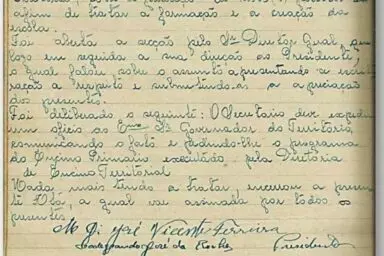 afim de tratar a formação e a criação da
escola.
Foi aberta a secção pelo Snr Diretor Geral, que
logo em seguida a sua direção ao Presidente,
o qual falou sobre o assunto apresentando a
ração a respeito e submetendo-a a apreciação
dos presentes.
Foi deliberado o seguinte: O Secretario deve expedir
um oficio ao Exmo Sr Governador do Territorio
comunicando o fato e pedindo-lhe o programa
do Ensino Primario executado pela Diretoria
de Ensino Territorial
Nada mais tendo a tratar, encerrou a presen
te Ata, a qual vae assinada por todos os
presentes.
José Vicente Ferreira
José da Rocha Presidente